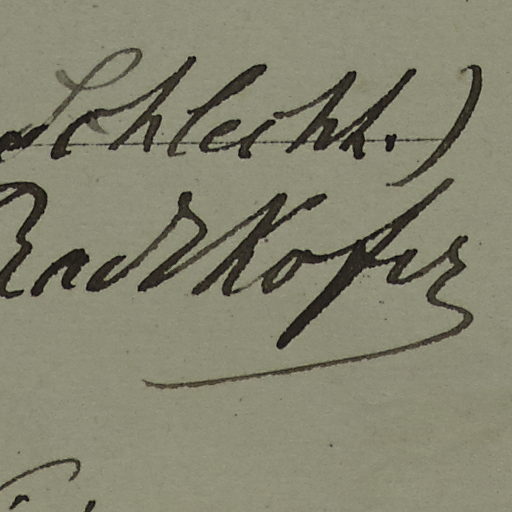 Schlechh.)
Radlkofer